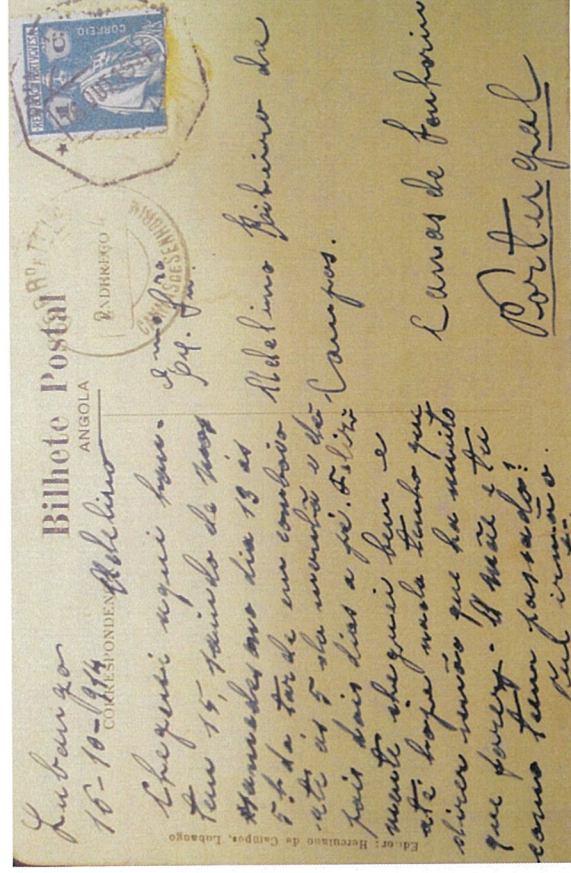 Bilhete Postal
ANGOLA
CORRESPONDENCIA
ENDEREÇO
REPUBLICA PORTUGUESA
CORREIO
1 C.
Lubango
16-10-914
Adelino
Cheguei aqui hon-
tem 15, saindo de Mos
samedes no dia 13 ás
5 h. da tarde em comboio
até ás 5 da manhã e de-
pois dois dias a pé. Feliz
mente cheguei bem e
até hoje nada tenho que
dizer senão que ha muito
que fazer. A mãe e tu
como teem passado?
Teu irmão.
Exmo. Snr.
Adelino Ribeiro de
Campos.
Canas de Senhorim
Portugal
Editor: Herculano de Campos, Lubango